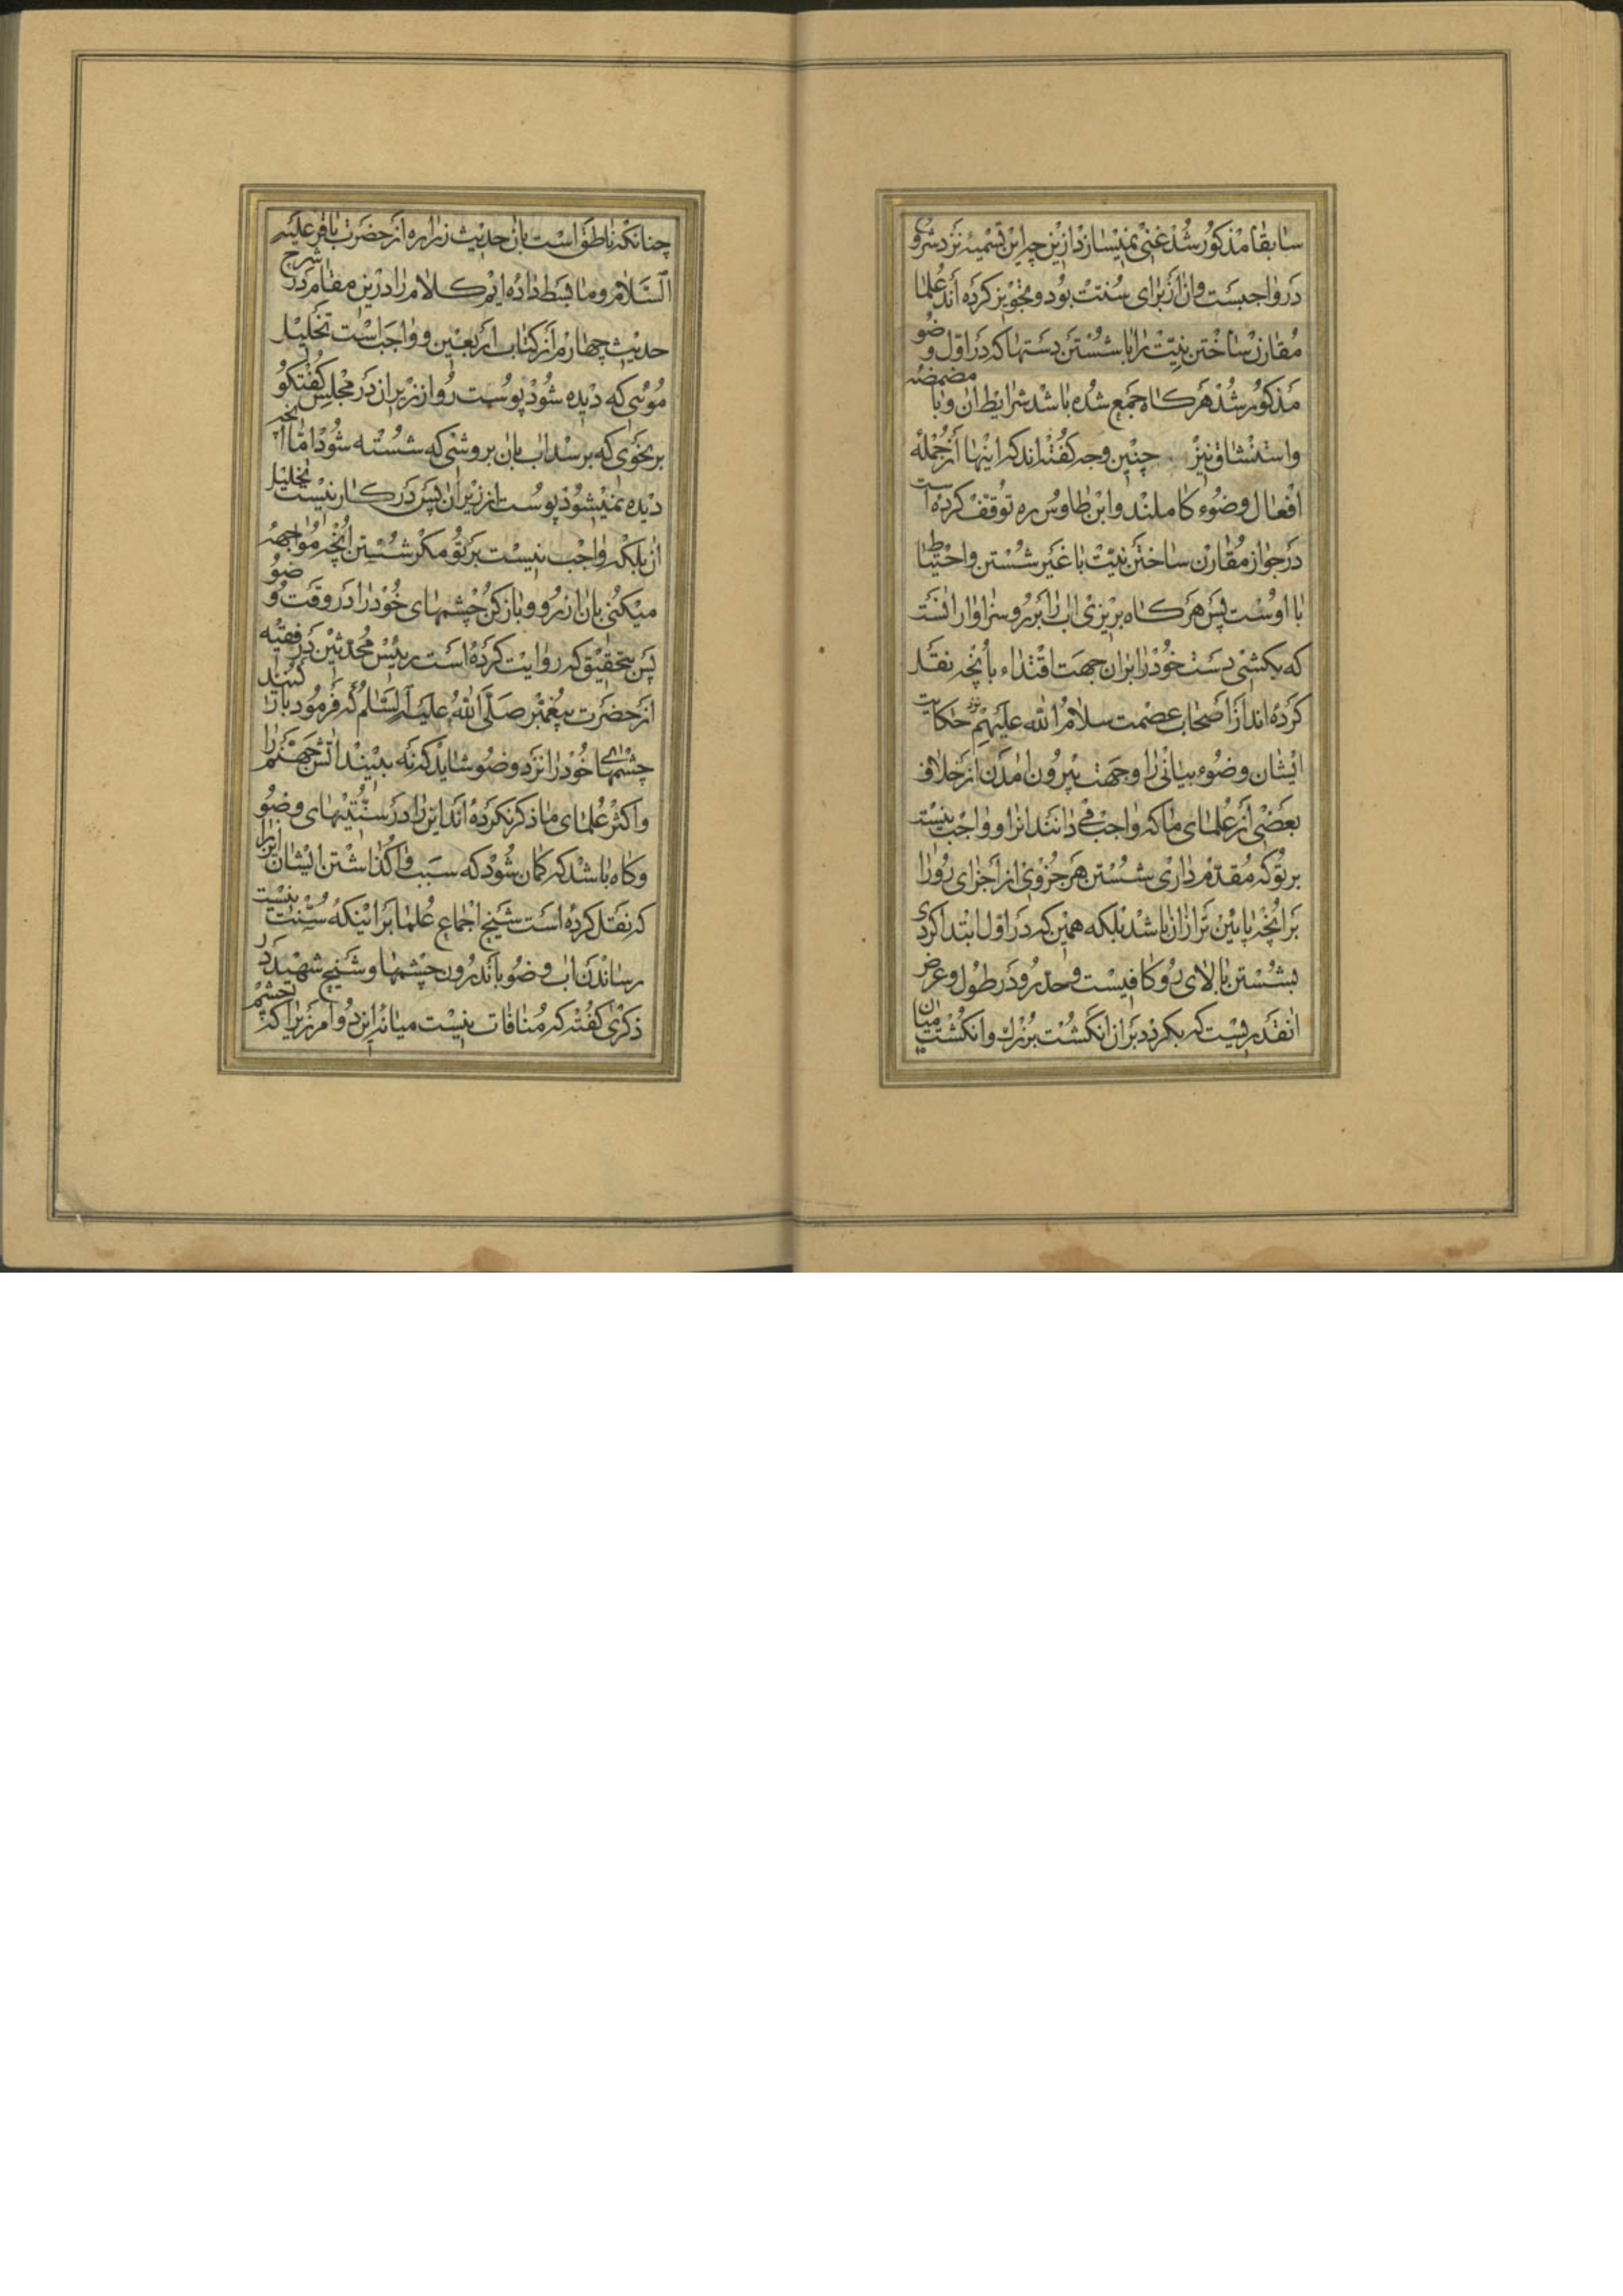 سابقا مذکور شد غنی نمیسازد ازین چه این تسمیه نزد شروع
در واجبست وان از برای سنت بود و تجویز کرده اند علما
مقارن ساختن نیت را با شستن دستها که در اول وضو
مذکور شد هر کاه جمع شده باشد شرایط ان و با مضمضه
واستنشاق نیز چنین وجه کفته اند که اینها از جمله
افعال وضوء کاملند وابن طاوس ره توقف کرده است
در جواز مقارن ساختن نیت با غیر شستن واحتیاط
با اوست پس هر کاه بریزی اب را بر رو سزاوار انست
که بکشی دست خود را بران جهت اقتداء بانچه نقل
کرده اند از اصحاب عصمت سلام الله علیهم حکایت
ایشان وضوء بیانی را وجهت بیرون امدن از خلاف
بعضی از علمای ما که واجب می دانند انرا و واجب نیست
بر تو که مقدم داری شستن هر جزوی از اجزای رو را
بر انچه پایین تر ازان باشد بلکه همین که در اول ابتدا کردی
بشستن بالای رو کافیست وحد رو در طول وعرض
انقدریست که بکردد بران انکشت بزرك وانکشت میان
چنانکه ناطق است بان حدیث زراره از حضرت باقر علیه
السلام وما بسط داده ایم کلام را درین مقام در شرح
حدیث چهارم از کتاب اربعین و واجب است تخلیل
موئی که دیده شود پوست رو از زیر ان در مجلس کفتکو
بر نحوی که برسد اب بان بروشی که شسته شود اما انچه
دیده نمیشود پوست از زیر ان پس در کار نیست تخلیل
ان بلکه واجب نیست بر تو مکر شستن انچه مواجهه
میکنی بان از رو وباز کن چشمهای خود را در وقت وضو
پس بتحقیق که روایت کرده است رئیس محدثین در فقیه
از حضرت پیغمبر صلی الله علیه السلام که فرمود باز کنند
چشمهای خود را نزد وضو شاید که نه بینید اتش جهنم را
واکثر علمای ما ذکر نکرده اند این را در سنتیهای وضو
وکاه باشد که کمان شود که سبب واکذاشتن ایشان انرا
که نقل کرده است شیخ اجماع علما بر اینکه سنت نیست
رساندن اب وضو باندرون چشمها وشیخ شهید در
ذکری کفته که منافات نیست میانه این دو امر زیرا که چشم